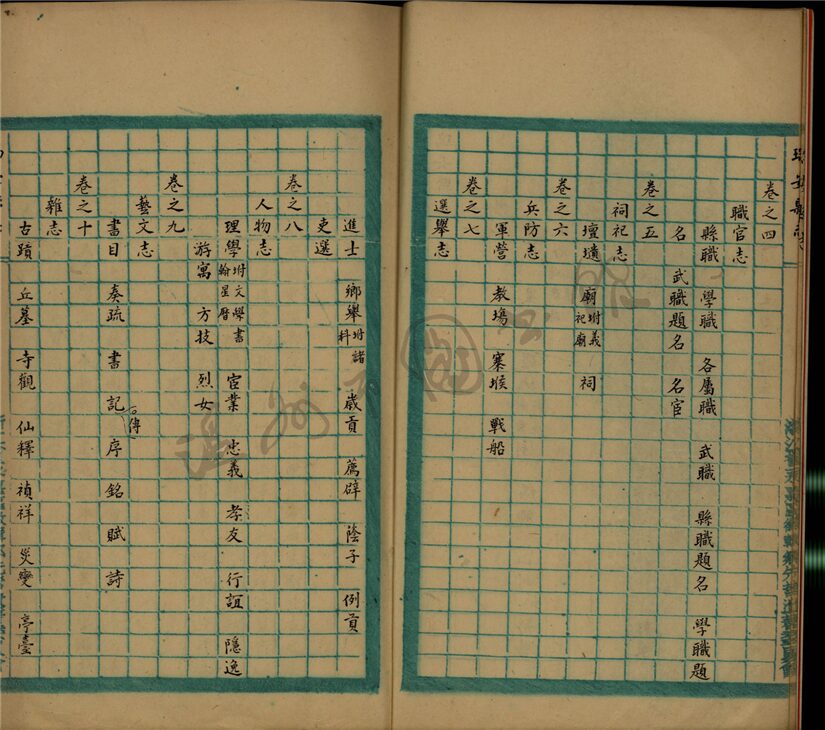 卷之四
職官志
縣職 學職 各屬職 武職 縣職題名 學職題
名 武職題名 名宦
卷之五
祠祀志
壇壝 廟 附義祀廟 祠
卷之六
兵防志
軍營 教場 寨堠 戰船
卷之七
選舉志
進士 鄉舉 附諸科 歲貢 薦辟 蔭子 例貢
吏選
卷之八
人物志
理學 附文學書翰星曆 宦業 忠義 孝友 行誼 隱逸
游寓 方技 烈女
卷之九
藝文志
書目 奏疏 書 記 傳 序 銘 賦 詩
卷之十
雜志
古蹟 丘墓 寺觀 仙釋 禎祥 災變 亭臺